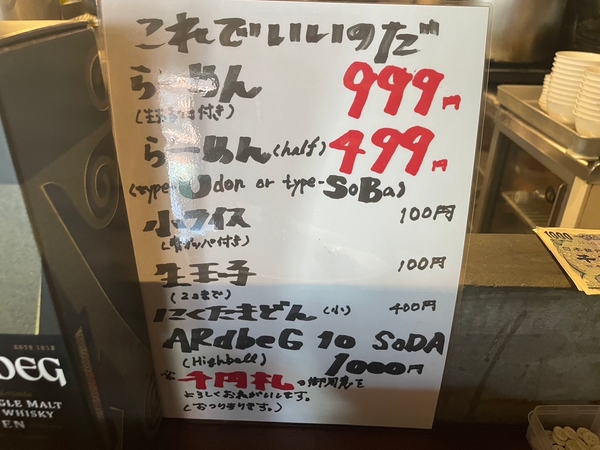 これでいいのだ
らーめん 999円
(生たまご付き)
らーめん(half) 499円
(type-Udon or type-SoBa)
小ライス 100円
付き)
生玉子 100円
(2コまで)
にくたまどん(小) 400円
ARdbeG 10 SoDA
(Highball) 1000円
※千円札の御用意を
よろしくお願いします。
(おつり有ります。)
BEG
ESTD 1815
GLE MALT
WHISKY
EN
1000